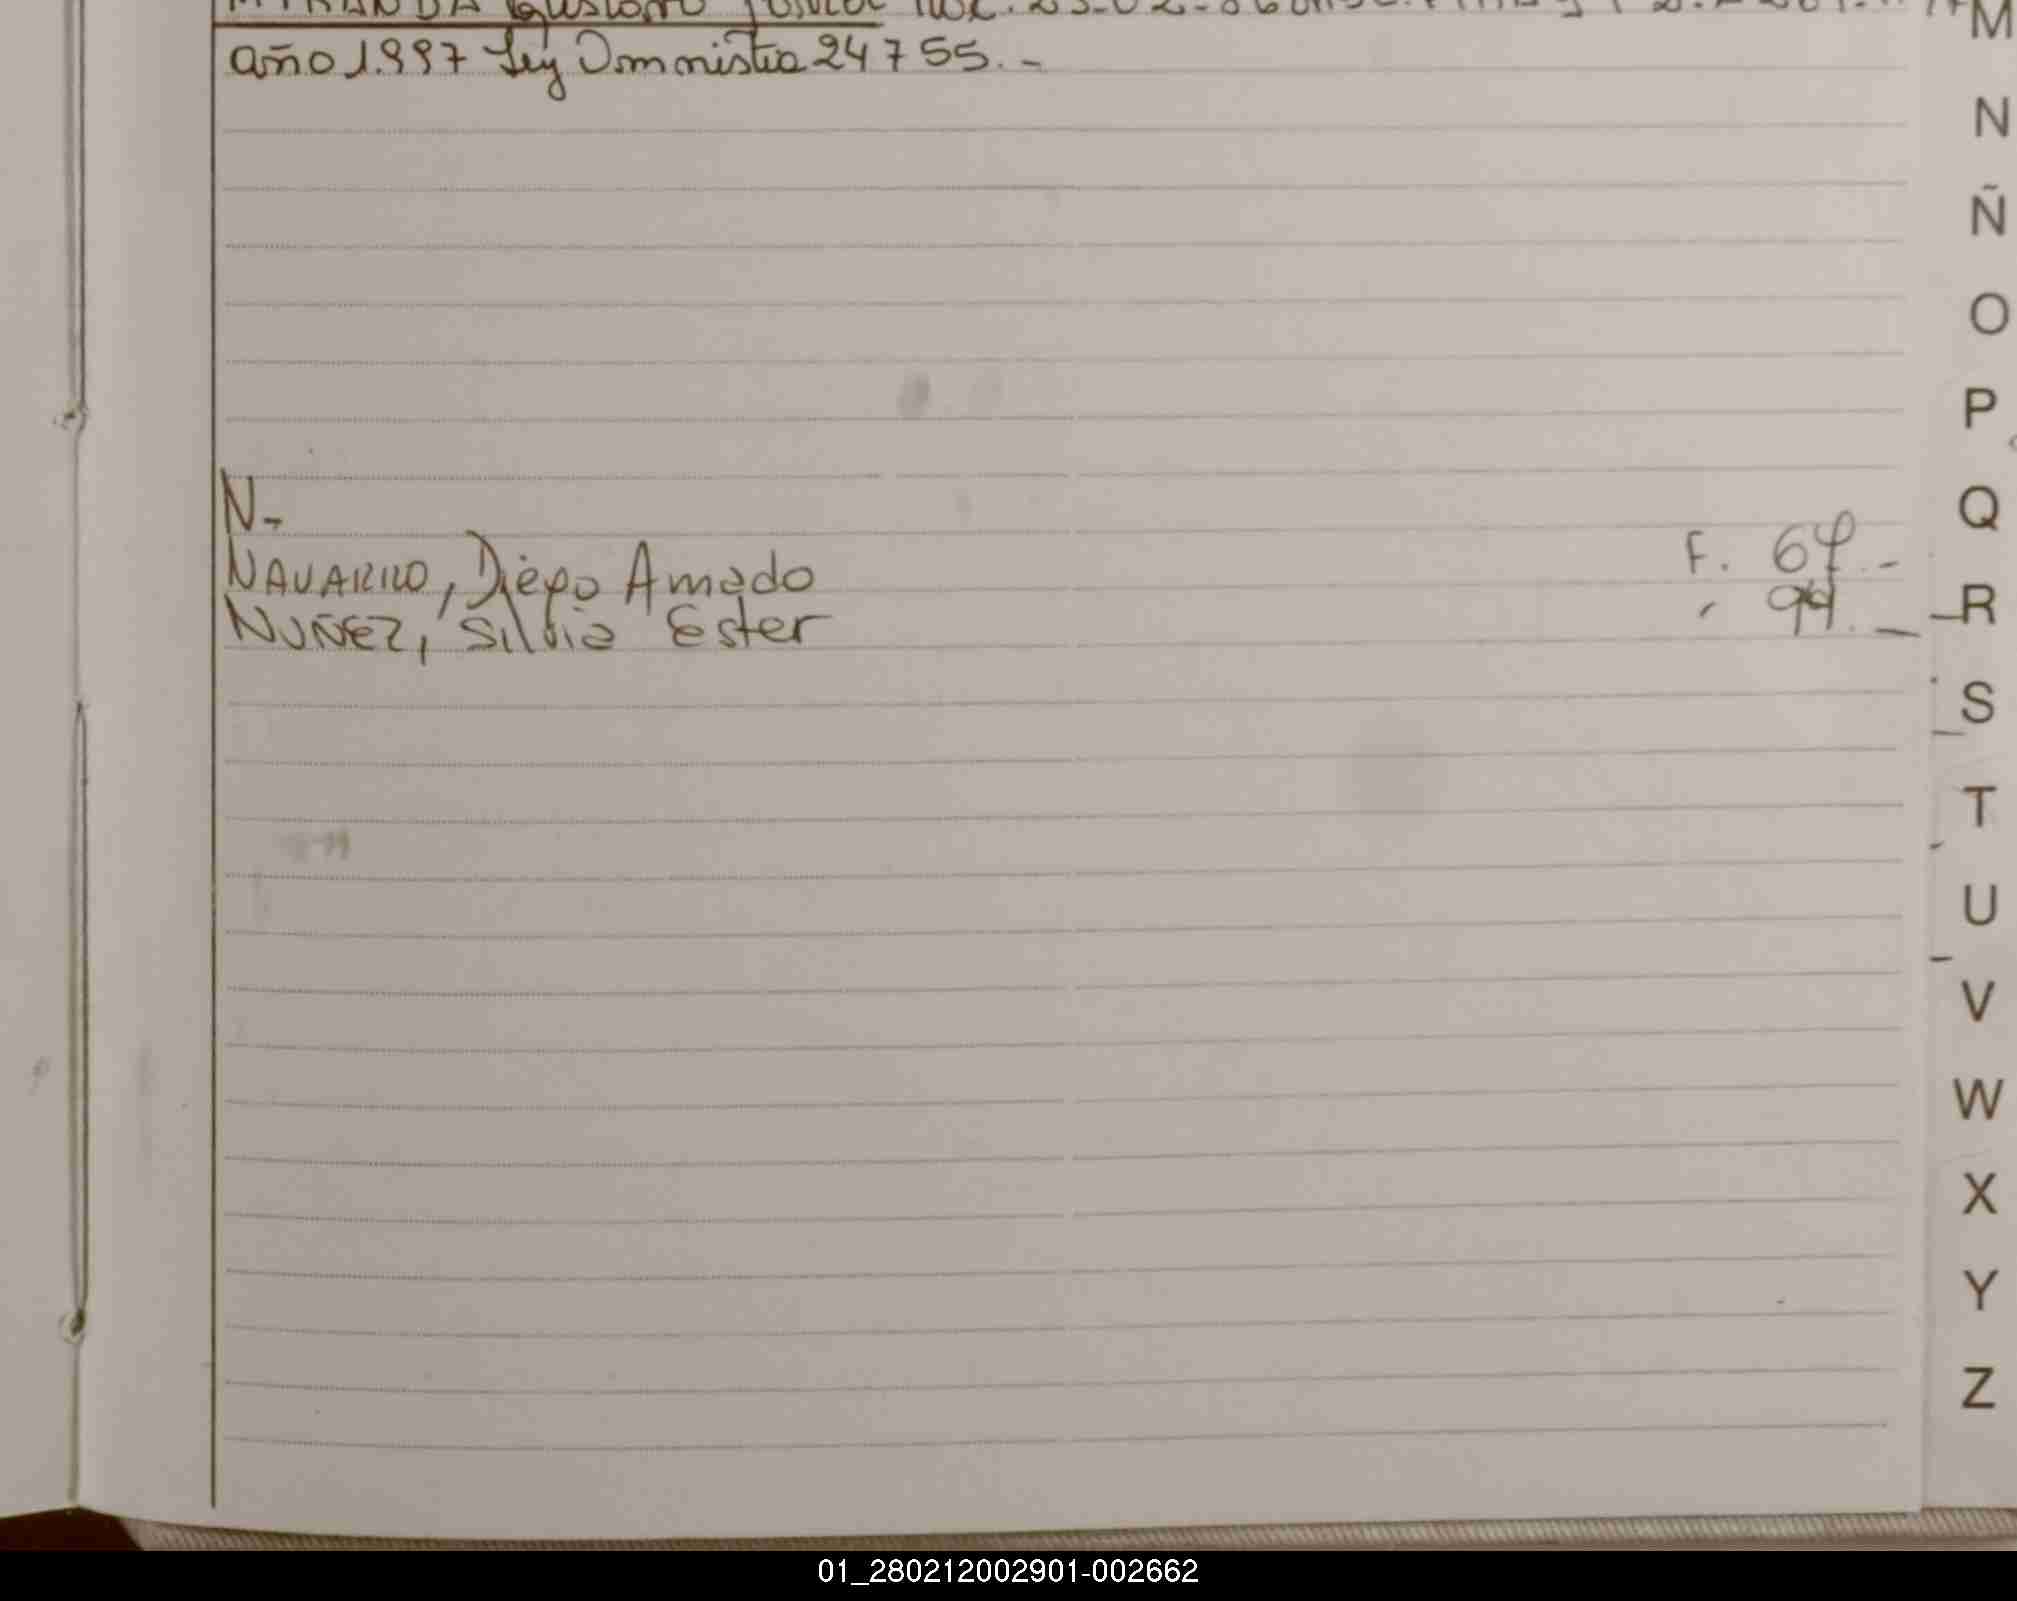 MIRANDA Gustavo
año 1.997 Ley Omnistia 24755.-
N-
NAVARRO, Diego Amado F. 67.-
NUÑEZ, Silvia Ester " 94.-
M
N
Ñ
O
P
Q
R
S
T
U
V
W
X
Y
Z
01_280212002901-002662